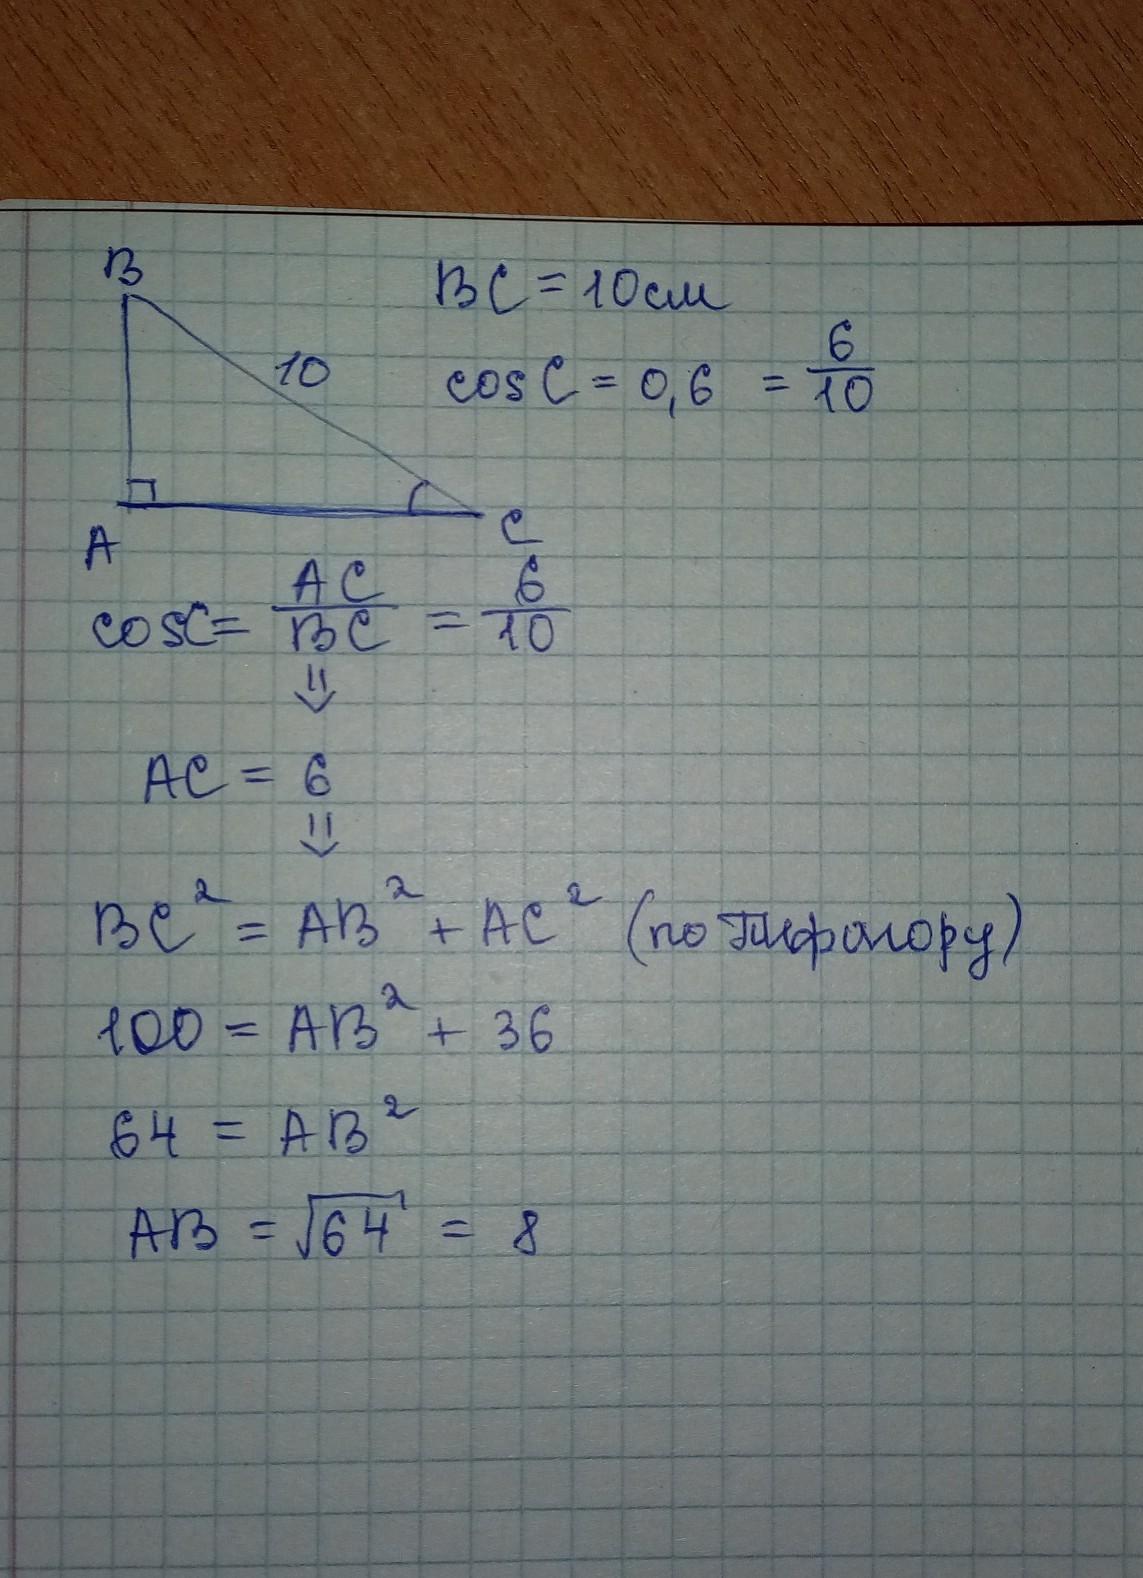 B
BC = 10см
10
cos C = 0,6 = 6/10
A
C
cosC = AC/BC = 6/10
⇓
AC = 6
⇓
BC² = AB² + AC² (по Пифагору)
100 = AB² + 36
64 = AB²
AB = √64 = 8